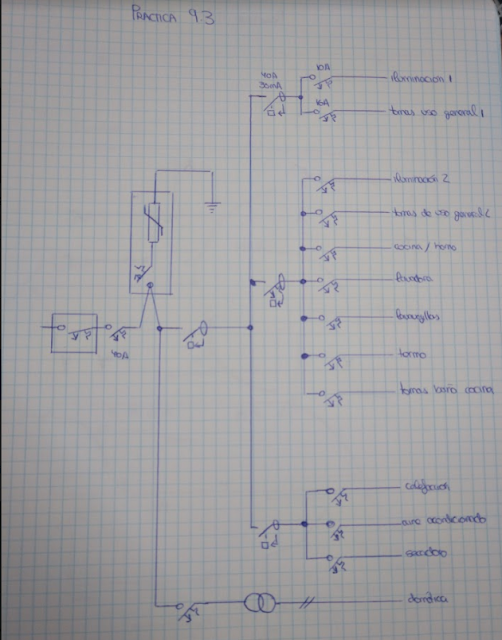 PRACTICA 9.3
10A
40A
30mA
iluminacion 1
16A
tomas uso general 1
iluminacio 2
tomas de uso general 2
cocina / horno
lavadora
lavavajillas
termo
tomas baño cocina
40A
calefaccion
aire acondicionado
secadora
domótica